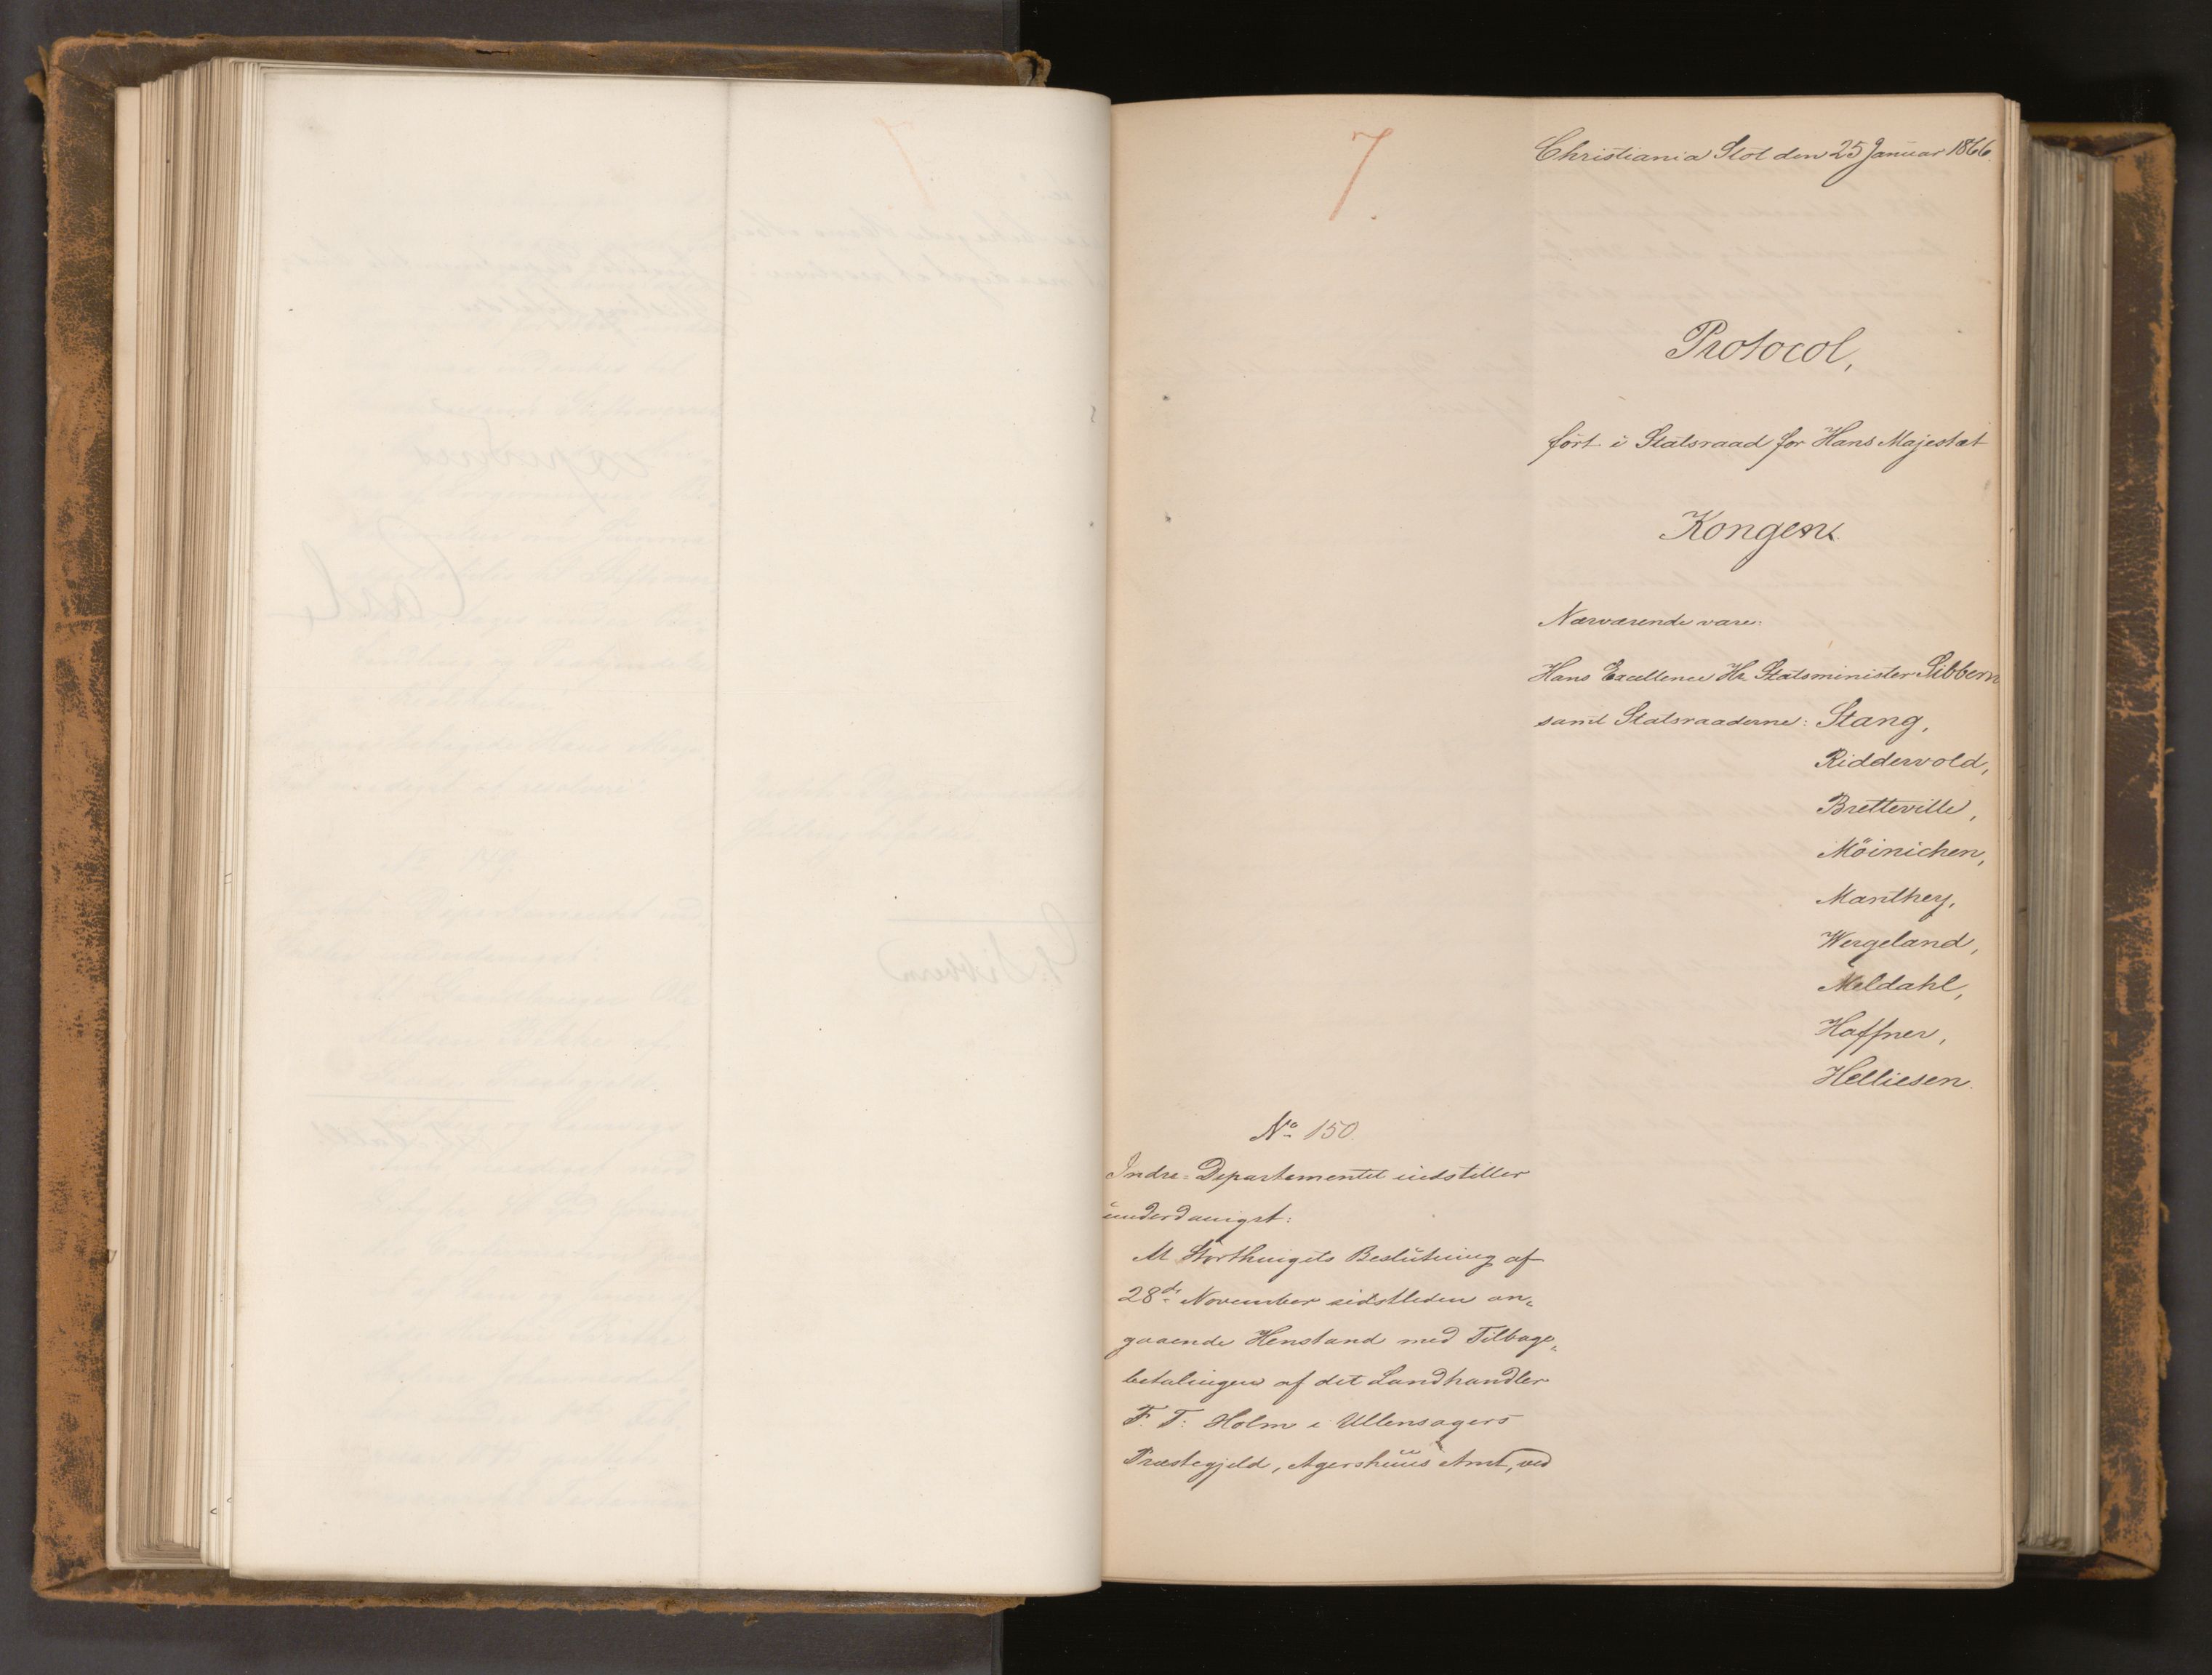 7.
Christiania Slot den 25 Januar 1866.
Protocol,
ført i Statsraad for Hans Majestæt
Kongen.
Nærværende vare:
Hans Excellence Hr. Statsminister Sibbern
samt Statsraaderne: Stang,
Riddervold,
Bretteville,
Möinichen,
Manthey,
Wergeland,
Meldahl,
Haffner,
Helliesen.
No 150.
Indre-Departementet indstiller
underdanigst:
At Storthingets Beslutning af
28de November sidstleden an-
gaaende Henstand med Tilbage-
betalingen af det Landhandler
F. T. Holm i Ullensagers
Præstegjeld, Agershuus Amt, ved